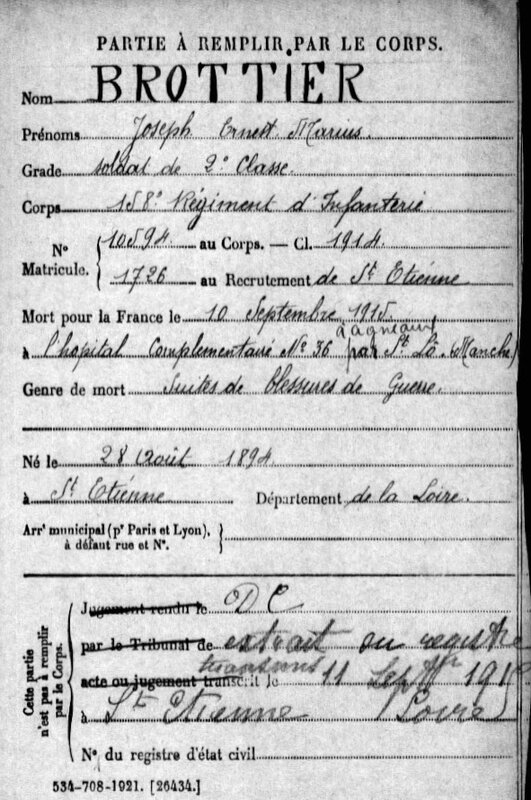 PARTIE À REMPLIR PAR LE CORPS.
Nom BROTTIER
Prénoms Joseph Ernest Marius.
Grade soldat de 2e Classe.
Corps 158e Régiment d'Infanterie
No Matricule. 10594 au Corps. — Cl. 1914
1726 au Recrutement de St Etienne
Mort pour la France le 10 Septembre 1915
à agneaux
à l'hopital Complémentaire No 36 par St Lô (Manche)
Genre de mort Suites de blessures de Guerre.
Né le 28 Août 1894
à St Etienne Département de la Loire.
Arrt municipal (pr Paris et Lyon),
à défaut rue et No.
Cette partie n'est pas à remplir par le Corps.
Jugement rendu le DC
par le Tribunal de extrait du registre
transmis
acte ou jugement transcrit le 11 Sept
à St Etienne Loire
No du registre d'état civil
534-708-1921. [26434.]